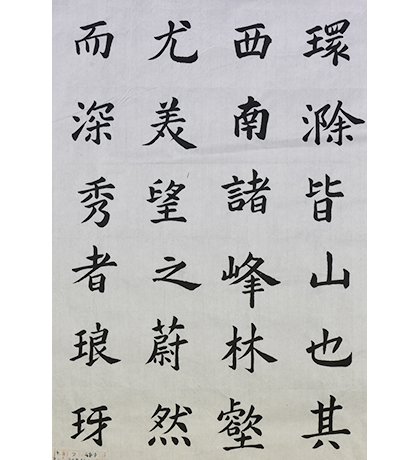 環滁皆山也其
西南諸峰林壑
尤美望之蔚然
而深秀者琅玡